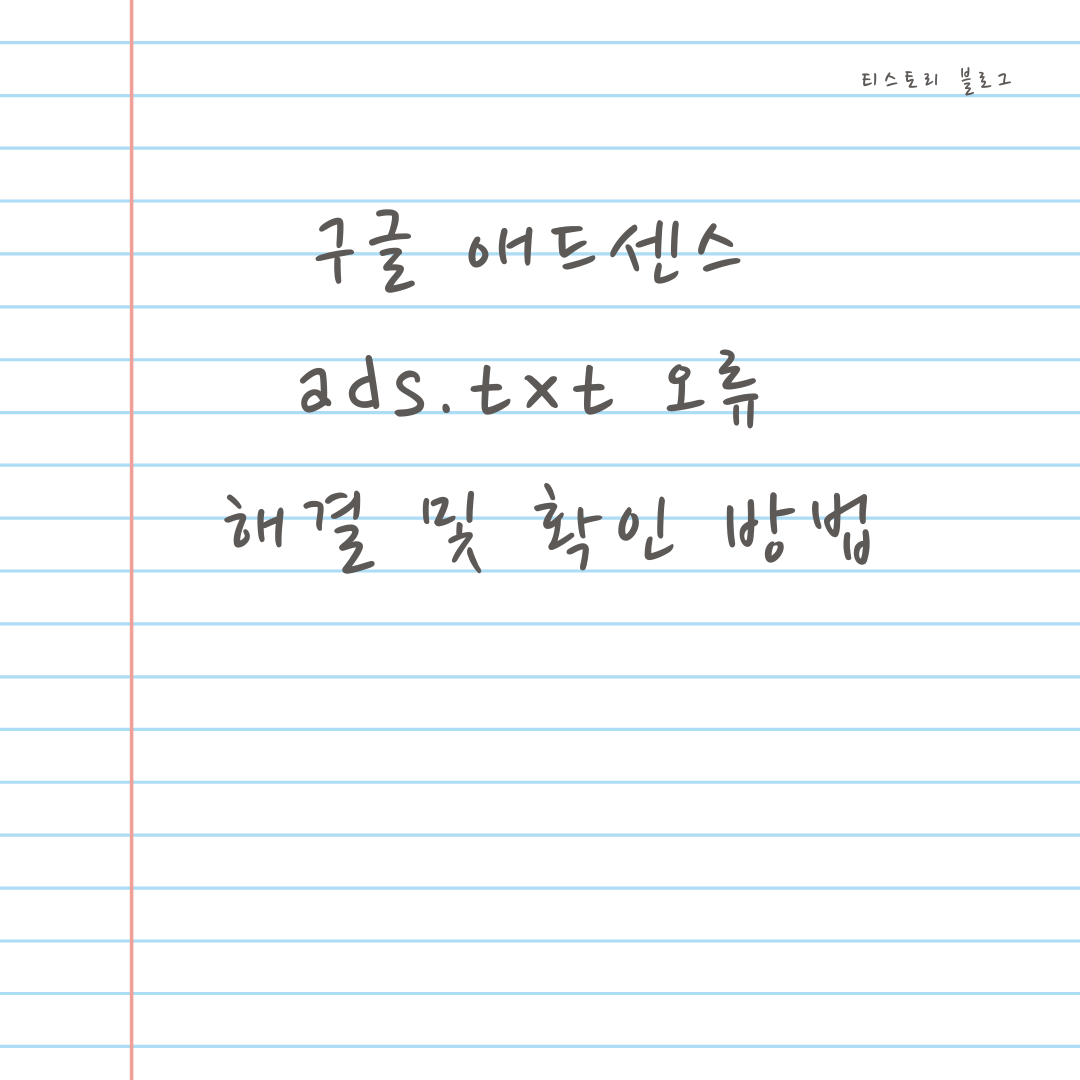 티스토리 블로그
구글 애드센스
ads.txt 오류
해결 및 확인 방법